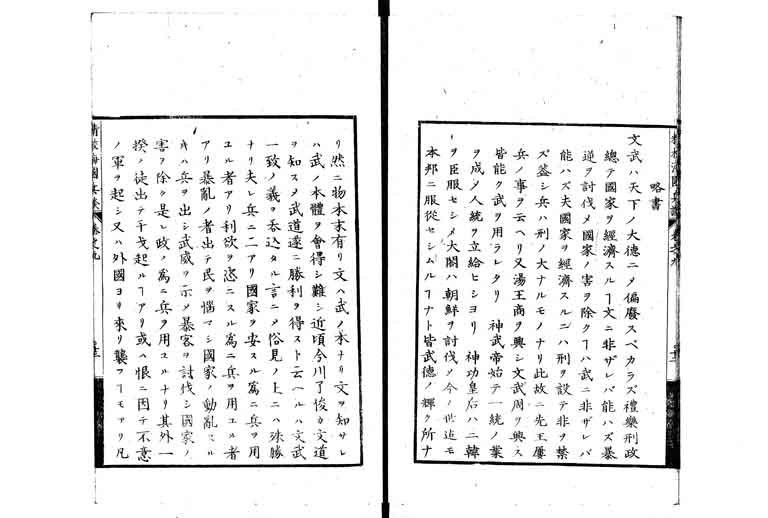 略書
文武ハ天下ノ大德ニメ偏廢スベカラズ禮樂刑政
總テ國家ヲ經濟スルヿ文ニ非ザレバ能ハズ暴
逆ヲ討伐メ國家ノ害ヲ除クヿハ武ニ非ザレバ
能ハズ夫國家ヲ經濟スルニハ刑ヲ設テ非ヲ禁
ズ蓋シ兵ハ刑ノ大ナルモノナリ此故ニ先王屢
兵ノ事ヲ云ヘリ又湯王商ヲ興シ文武周ヲ興ス
皆能ク武ヲ用ラレタリ　神武帝始テ一統ノ業
ヲ成メ人統ヲ立給ヒシヨリ　神功皇后ハ三韓
ヲ臣服セシメ大閤ハ朝鮮ヲ討伐メ今ノ世迄モ
本邦ニ服從セシムルヿナト皆武德ノ輝ク所ナ
リ然ニ物本末有リ文ハ武ノ本ナリ文ヲ知サレ
ハ武ノ本體ヲ會得シ難シ近頃今川了俊カ文道
ヲ知スメ武道遂ニ勝利ヲ得スト云ヘルハ文武
一致ノ義ヲ呑込タル言ニメ俗見ノ上ニハ殊勝
ナリ夫レ兵ニ二アリ國家ヲ安スル爲ニ兵ヲ用
ユル者アリ利欲ヲ恣ニスル爲ニ兵ヲ用ユル者
アリ暴亂ノ者出テ民ヲ惱マシ國家ノ動亂スル
片ハ兵ヲ出シ武威ヲ示メ暴客ヲ討伐シ國家ノ
害ヲ除ク是レ政ノ爲ニ兵ヲ用ユルナリ其外一
揆ノ徒出テ干戈起ルヿアリ或ハ恨ニ因テ不意
ノ軍ヲ起シ又ハ外國ヨリ來リ襲フヿモアリ凡
精校海國兵談　卷之九